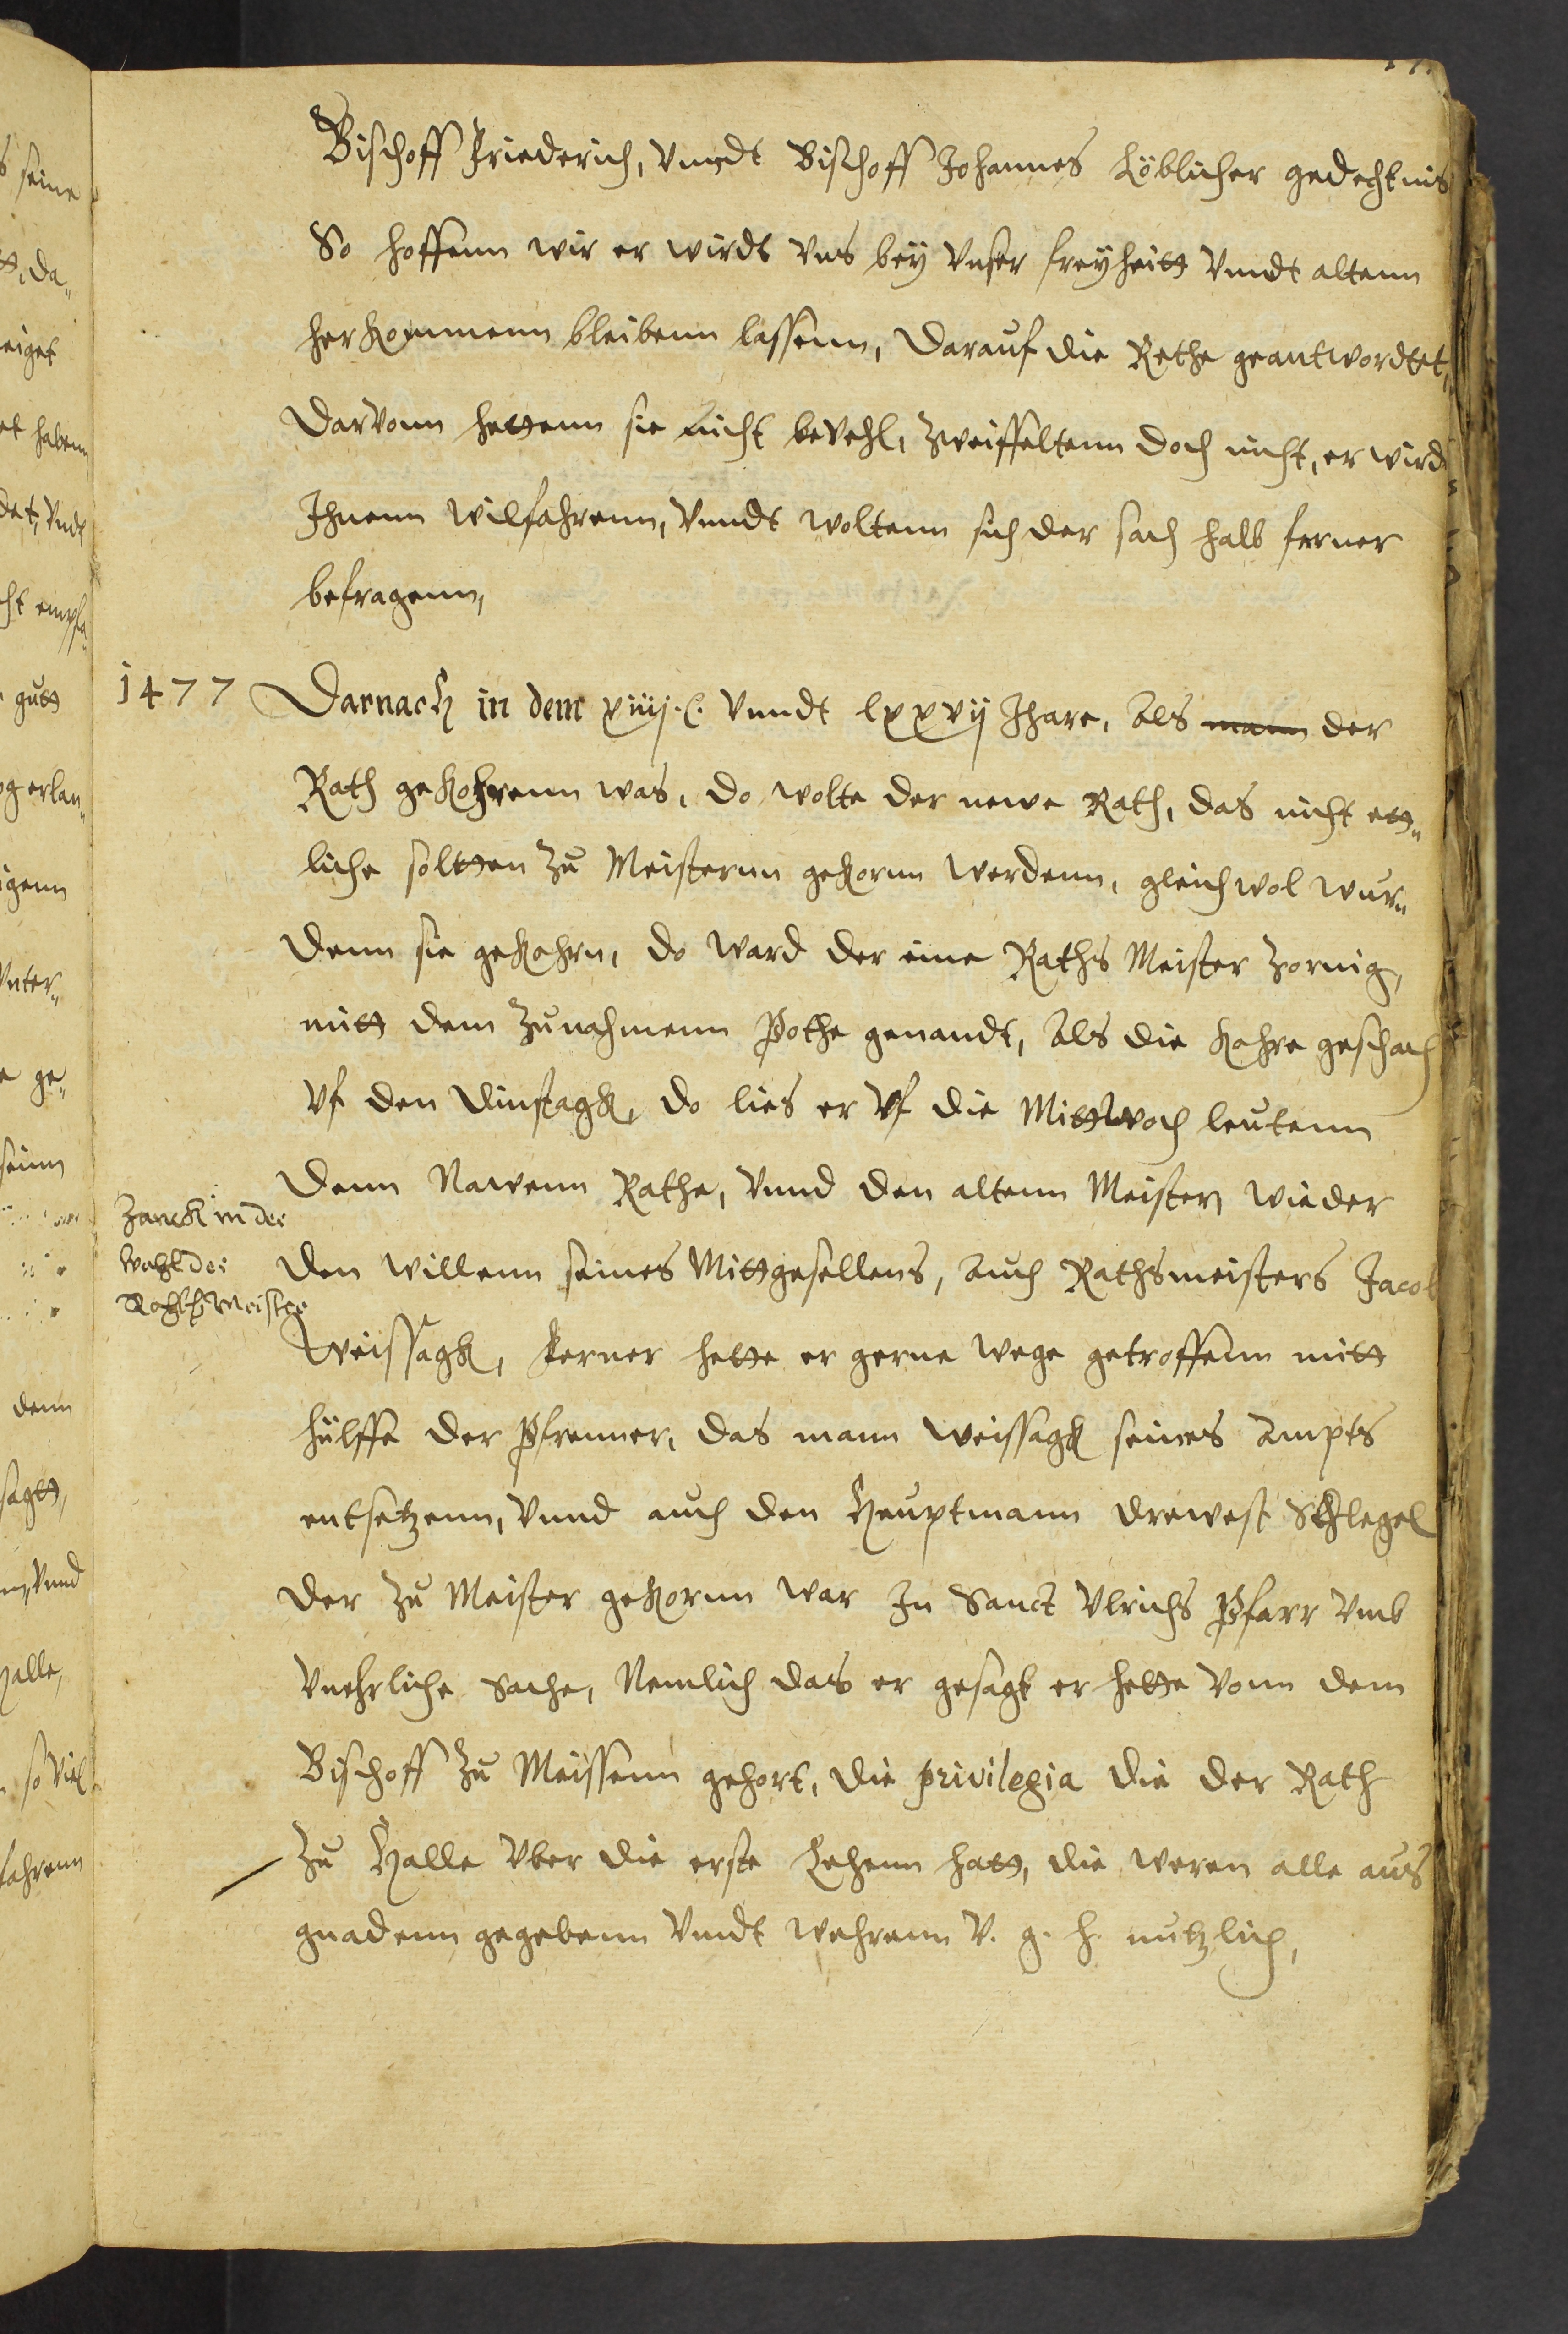 Bischoff Friederich, vnndt Bischoff Johannes Löblicher gedechtnis
So hoffenn wir er wirdt vns bey vnser freyheitt vnndt altenn
herkommenn bleibenn lassenn, Darauf die Rethe geantwordtet,
Darvonn hettenn sie nicht bevehl, zweiffeltenn doch nicht, er wird
Ihnenn wilfahrenn, vnndt woltenn sich der sach halb ferner
befragenn,
1477 Darnach in dem xiiij.C. vnndt lxxvij Jhare, Als mann der
Rath gekohrenn was, do wolte der newe Rath, das nicht ett„
liche soltten zu Meisternn gekornn werdenn, gleichwol wur„
denn sie gekohrn, do ward der eine Raths Meister zornig,
mitt dem zunahmenn Pothe genandt, Als die kohre geschach
vf den Dinstagk, do lies er vf die Mittwoch leutenn
denn Newenn Rathe, vnnd den altenn Meistern wieder
Zanck in der
wahl der
Rahts Meister
den willenn seines Mittgesellens, auch Rathsmeisters Jacob
Weissagk, Ferner hette er gerne wege getroffenn mitt
hülffe der Pfenner, das mann Weissagk seines Ampts
entsetzenn, vnnd auch den Heuptmann Drewest Schlegel
der zu Meister gekornn war In Sanct Vlrichs Pfarr vmb
vnehrliche sache, Nemlich das er gesagt er hette vonn dem
Bischoff zu Meissenn gehort, die privilegia die der Rath
zu Halle vber die erste Lehenn hatt, die weren alle aus
gnadenn gegebenn vnndt wehrenn V. g. h. nutzlich,
seine
tt, da„
eiget
et habenn
det, vndt
gutt
og erlan„
igenn
vnter„
e ge„
seinn
denn
sagtt,
vnnd
halle,
so viel
fahrenn